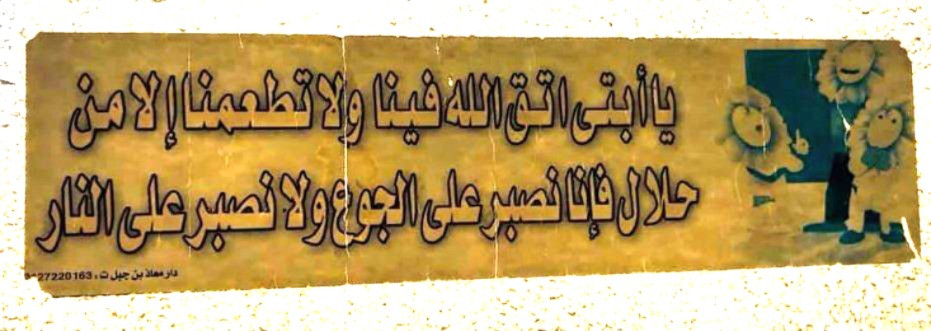 يا أبتى اتق الله فينا ولا تطعمنا إلا من
حلال فإنا نصبر على الجوع ولا نصبر على النار
دار معاذ بن جبل ت: 27220163